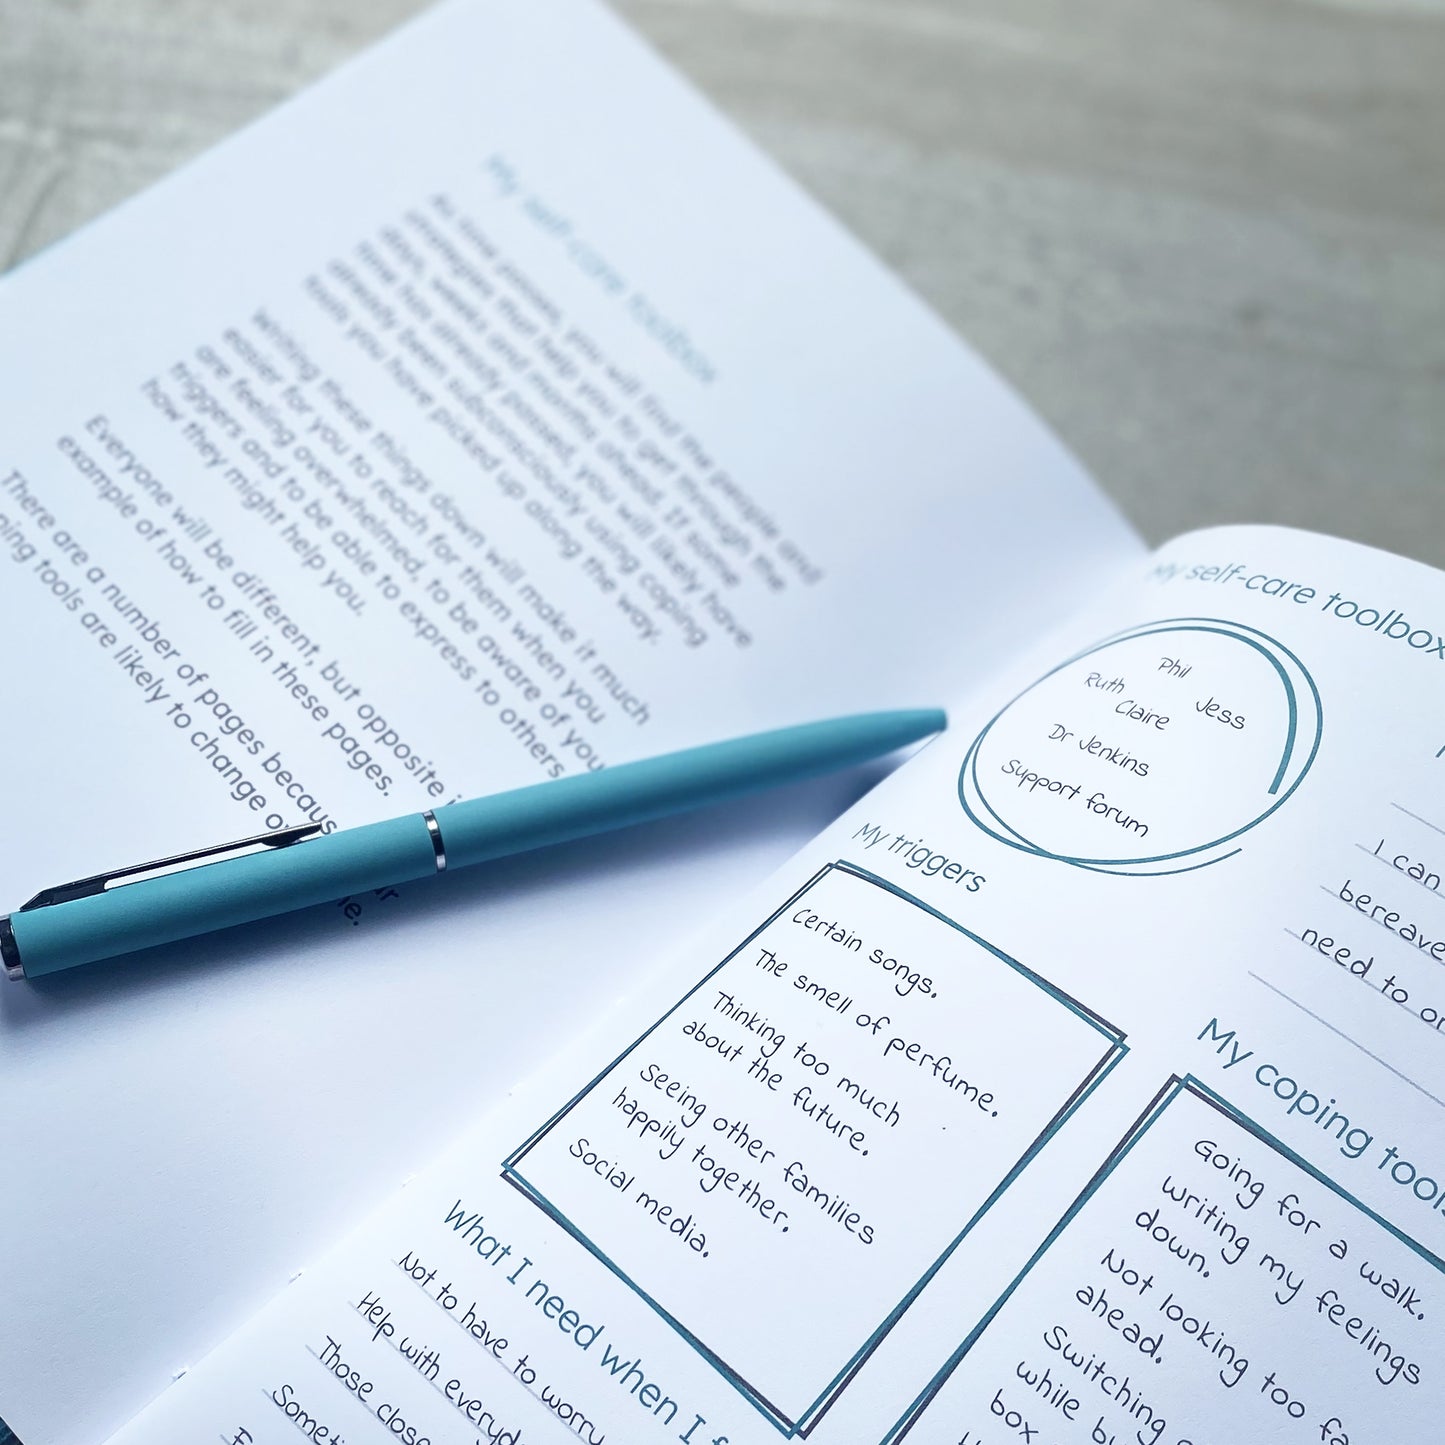 My self-care toolbox
As time passes, you will find the people and
strategies that help you to get through the
days, weeks and months ahead. If some
time has already passed, you will likely have
already been subconsciously using coping
tools you have picked up along the way.
Writing these things down will make it much
easier for you to reach for them when you
are feeling overwhelmed, to be aware of your
triggers and to be able to express to others
how they might help you.
Everyone will be different, but opposite i
example of how to fill in these pages.
There are a number of pages becaus
ping tools are likely to change o
My self-care toolbox
Phil
Ruth
Jess
Claire
Dr Jenkins
Support forum
My triggers
Certain songs.
The smell of perfume.
Thinking too much
about the future.
Seeing other families
happily together.
Social media.
What I need when I f
Not to have to worry
Help with everyd
Those close
Someti
I can
bereave
need to
My coping tools
Going for a walk.
Writing my feelings
down.
Not looking too fa
ahead.
Switching
while bu
box